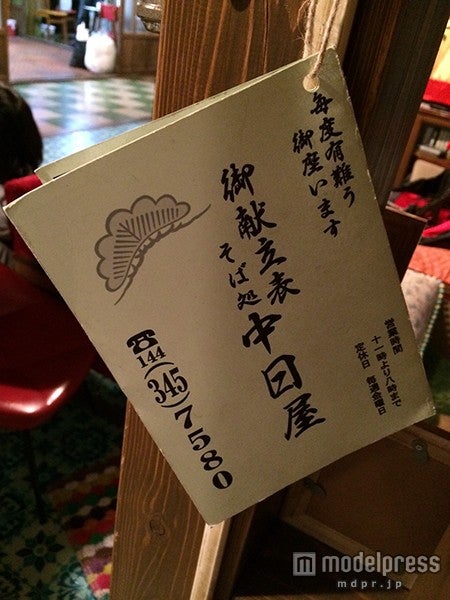 毎度有難う
御座います
御献立表
そば処
中日屋
営業時間
十一時より八時まで
定休日 毎週金曜日
☎144(345)7580
modelpress
mdpr.jp